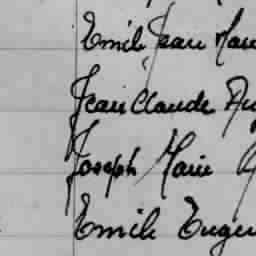 Emile Jean Mari
Jean Claude Au
Joseph Marie
Emile Eugen